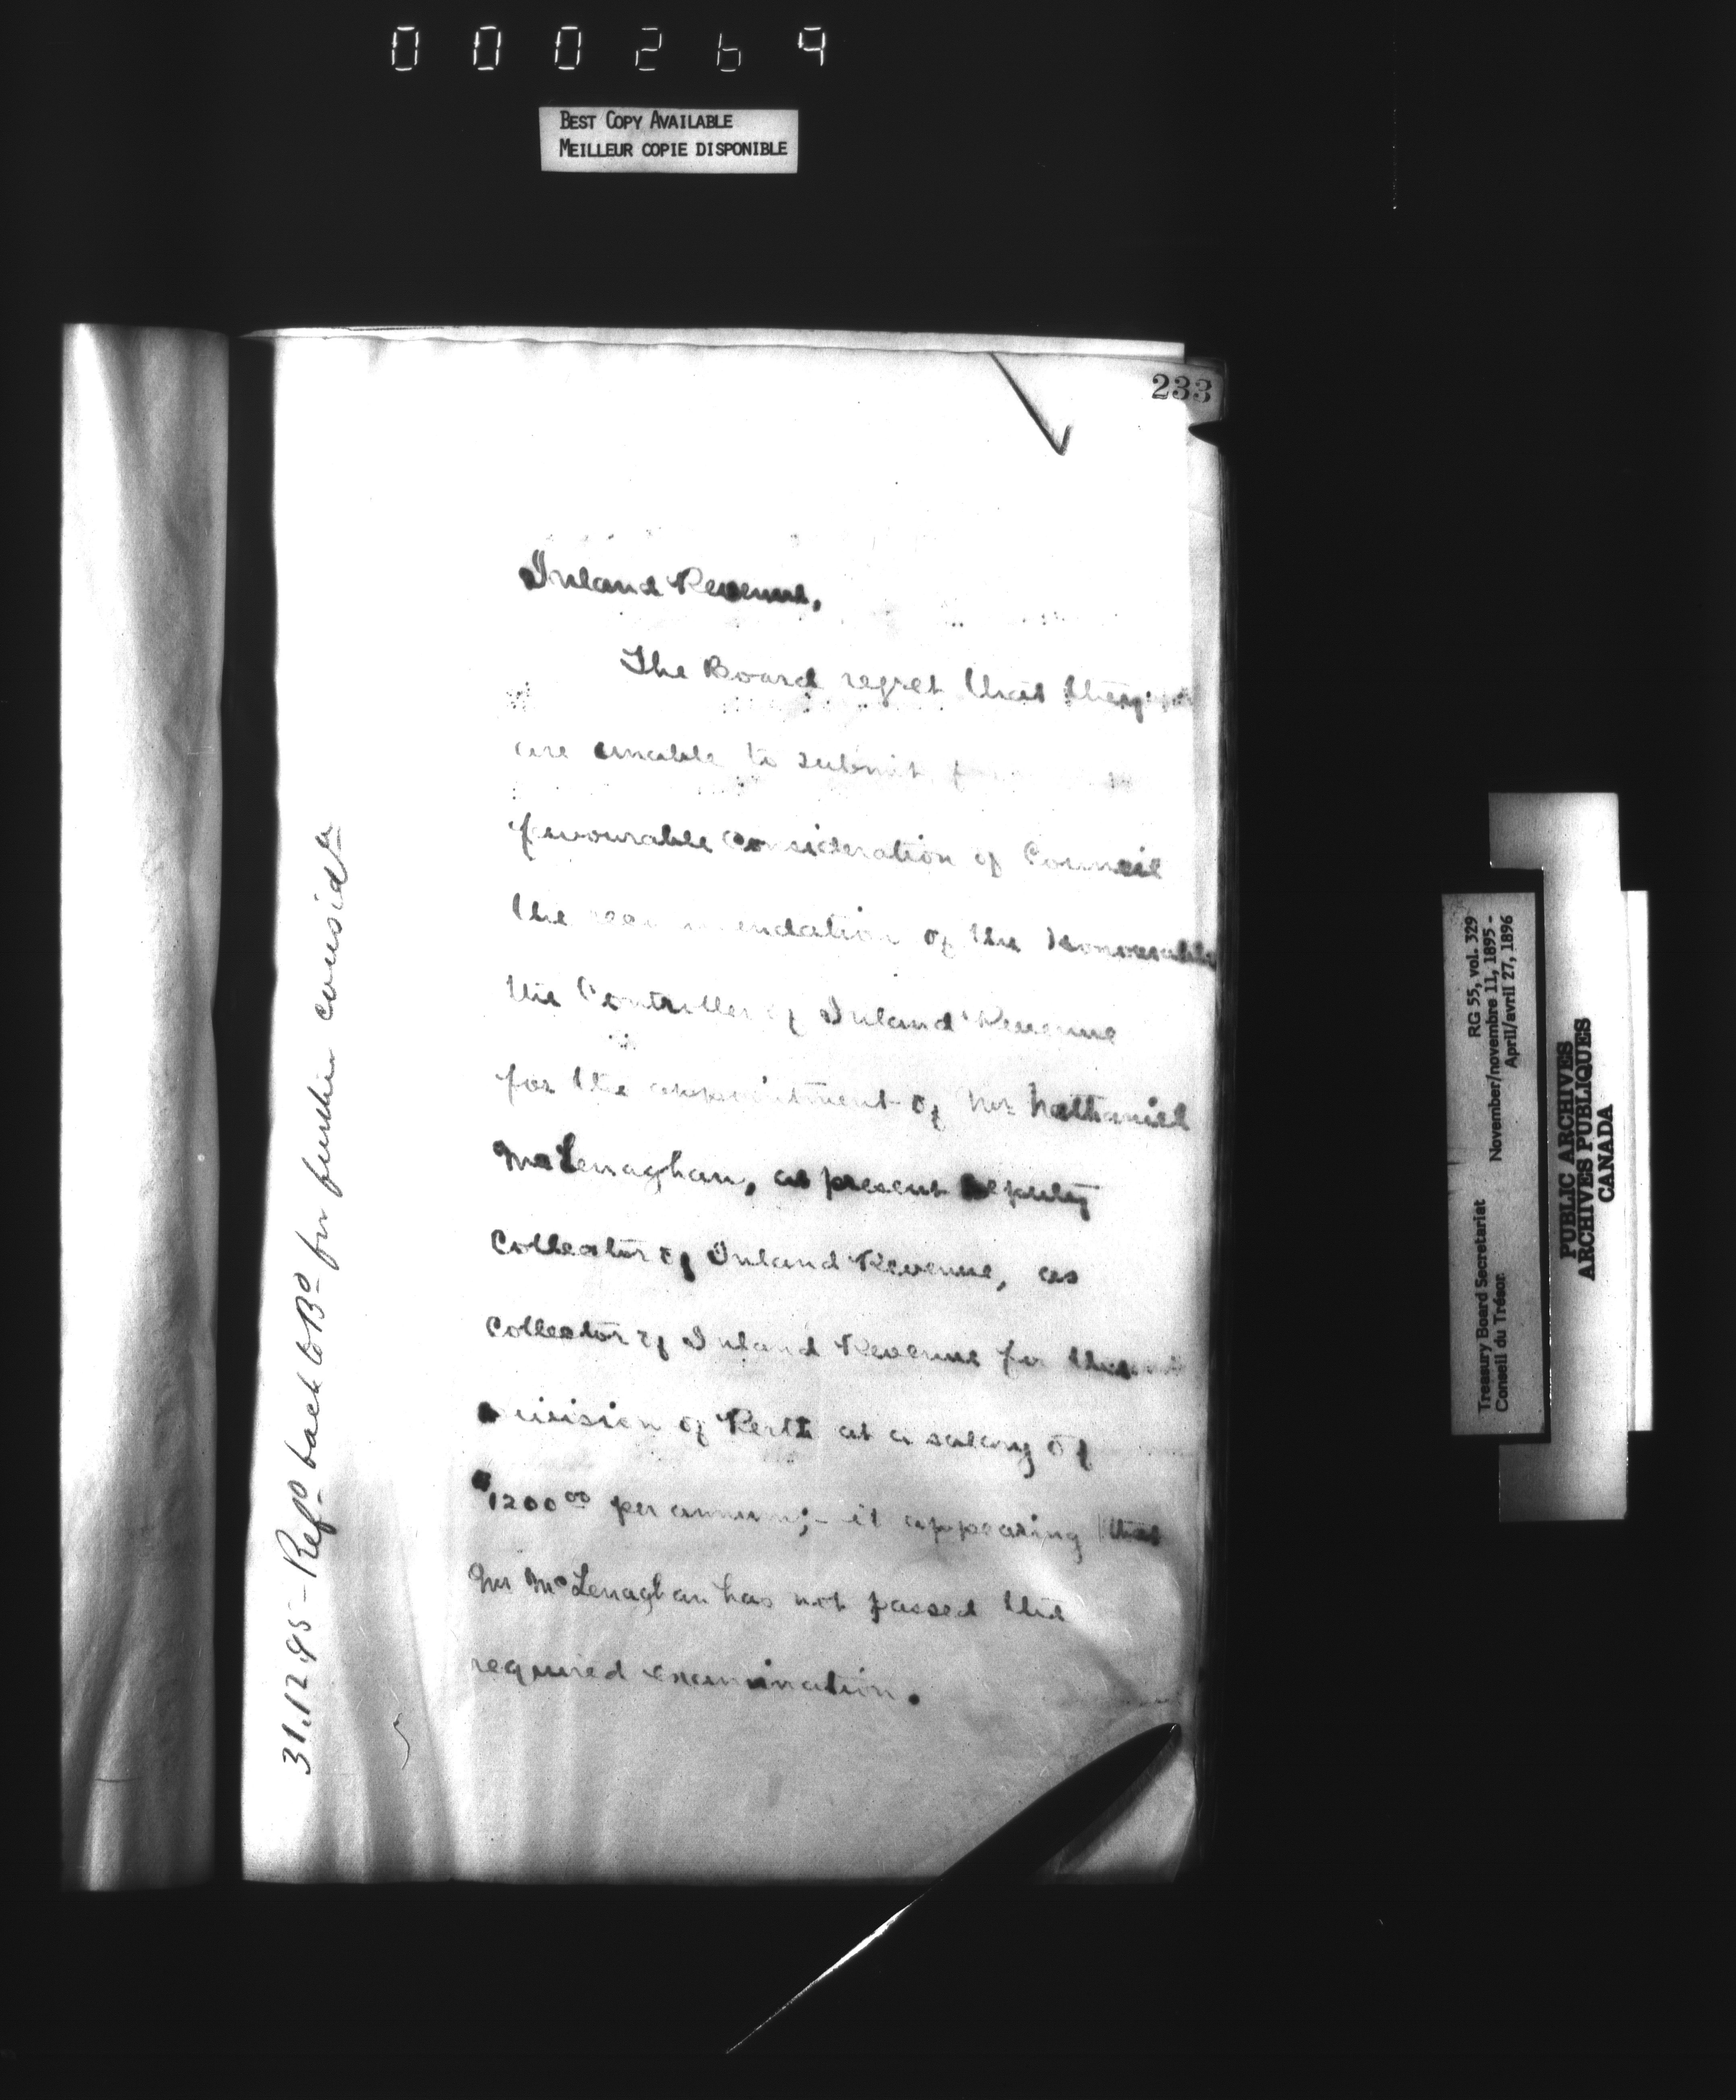 000269
BEST COPY AVAILABLE
MEILLEUR COPIE DISPONIBLE
233
Inland Revenue,
The Board regret that they
are unable to submit
favourable consideration of Council
the recommendation of the Honourable
the Controller of Inland Revenue
for the appointment of Mr Nathaniel
McLenaghan, at present Deputy
Collector of Inland Revenue, as
Collector of Inland Revenue for the
Division of Perth at a salary of
$1200 00 per annum;- it appearing that
Mr McLenaghan has not passed the
required examination.
31.12.95 - Refd back to Bd for further considn
RG 55, vol. 329
November/novembre 11, 1895 -
April/avril 27, 1896
Treasury Board Secretariat
Conseil du Trésor
PUBLIC ARCHIVES
ARCHIVES PUBLIQUES
CANADA